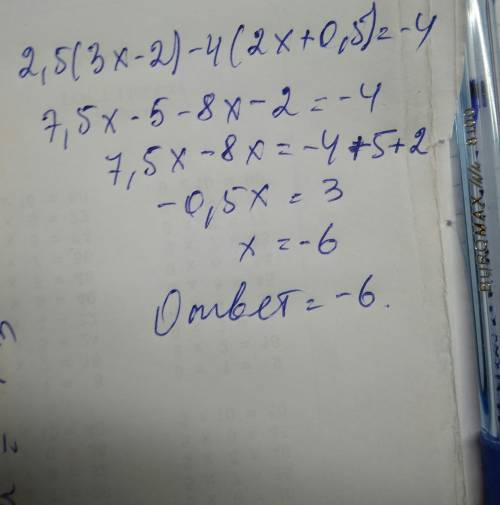 2,5(3x-2)-4(2x+0,5)=-4
7,5x-5-8x-2=-4
7,5x-8x=-4+5+2
-0,5x=3
x=-6
Ответ=-6.
BUROMAX